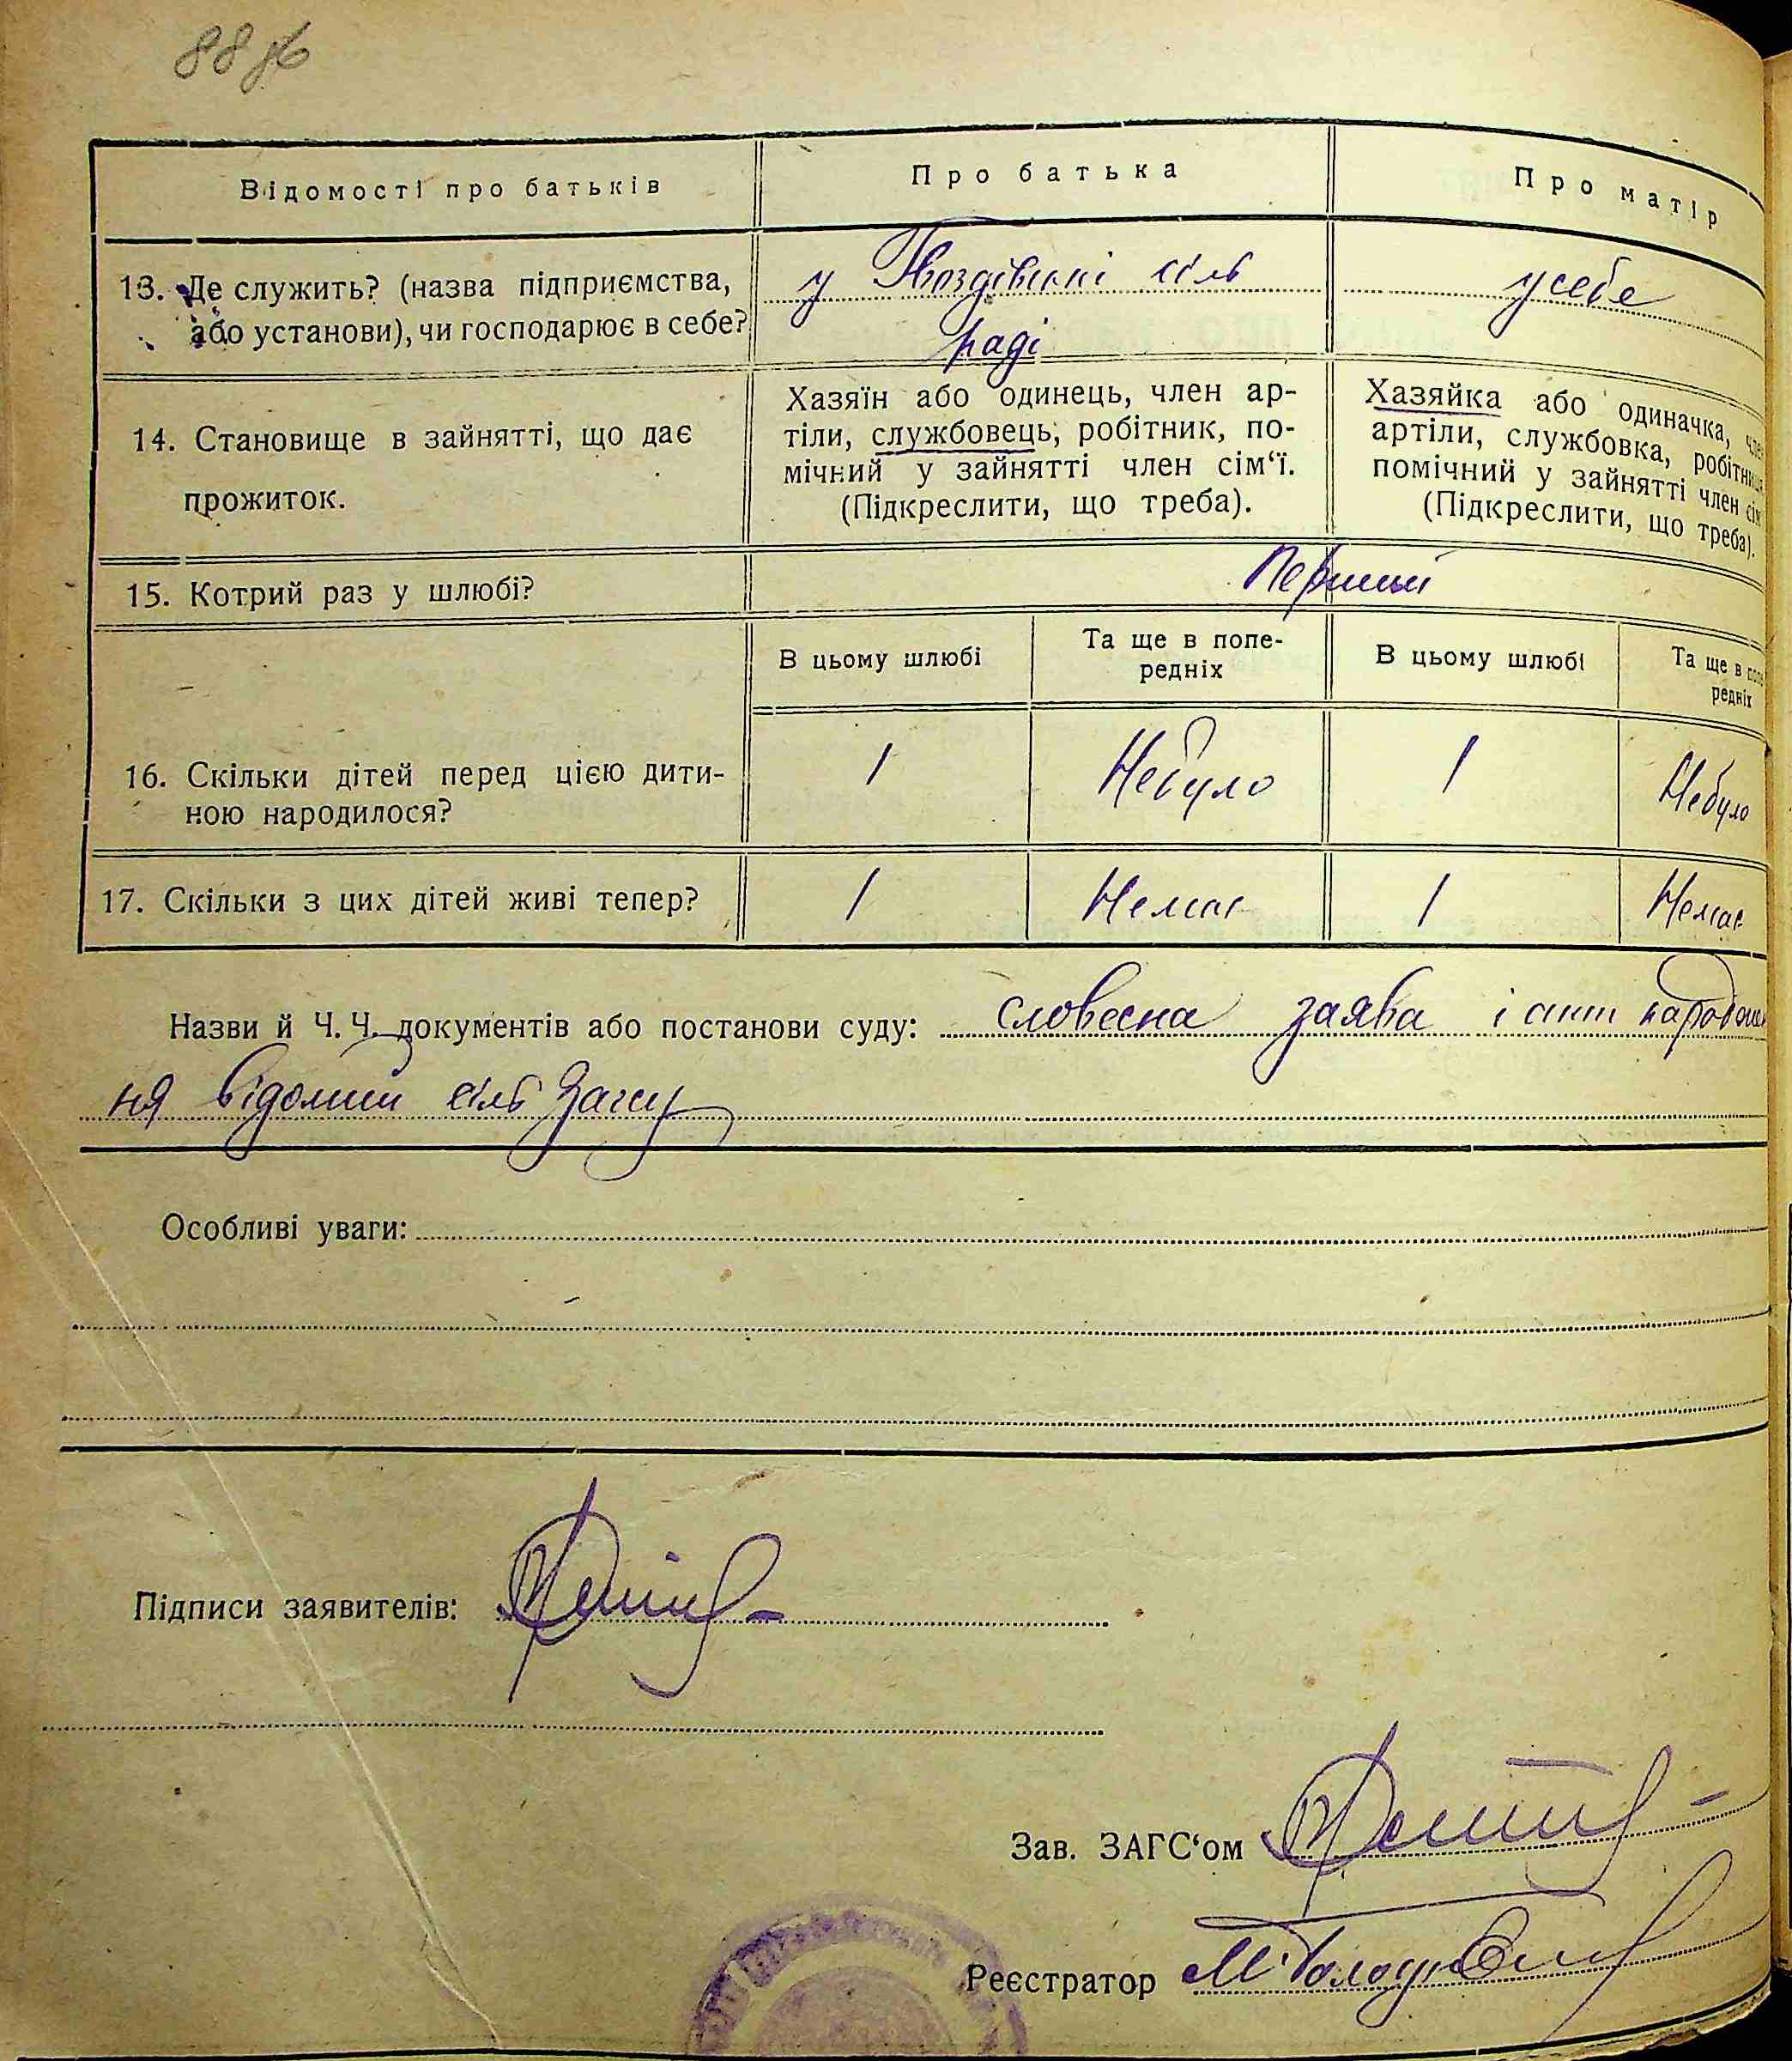 88
Відомості про батьків
Про батька
Про матір
13. Де служить? (назва підприємства,
або установи), чи господарює в себе?
у Гвоздівській сіль
раді
усебе
14. Становище в зайнятті, що дає
прожиток.
Хазяїн або одинець, член ар-
тіли, службовець, робітник, по-
мічний у зайнятті член сім‘ї.
(Підкреслити, що треба).
Хазяйка або одиначка, член
артіли, службовка, робітниця
помічний у зайнятті член сім
(Підкреслити, що треба).
15. Котрий раз у шлюбі?
Перший
В цьому шлюбі
Та ще в попе-
редніх
В цьому шлюбі
Та ще в попе-
редніх
16. Скільки дітей перед цією дити-
ною народилося?
1
Небуло
1
Небуло
17. Скільки з цих дітей живі тепер?
1
Немає
1
Немає
Назви й Ч. Ч. документів або постанови суду: словесна заява і акт народжен
ня відомий сіль Загсу
Особливі уваги:
Підписи заявителів:
Зав. ЗАГС‘ом
Реєстратор